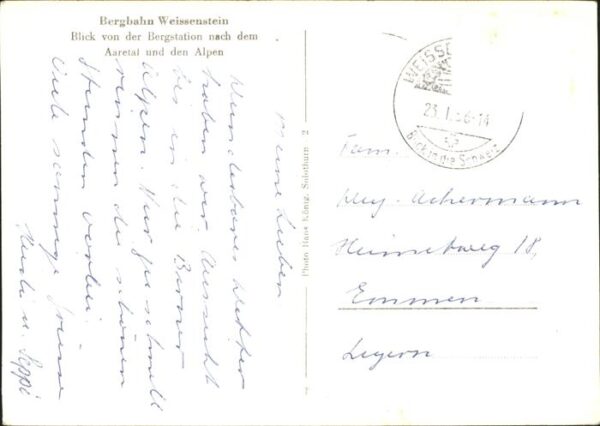 Bergbahn Weissenstein
Blick von der Bergstation nach dem
Aaretal und den Alpen
Meine Lieben
Wunderbares Wetter
haben wir Aussicht
bis in die Berner
Alpen. Nur zu schnell
rennen die schönen
Stunden vorbei.
Viele sonnige Grüsse
Heidi u. Seppi
Photo Hans König, Solothurn 2
WEISSE
23. 1. 56-14
Blick in die Schweiz
Fam.
Wey-Achermann
Heimetweg 18,
Emmen
Luzern